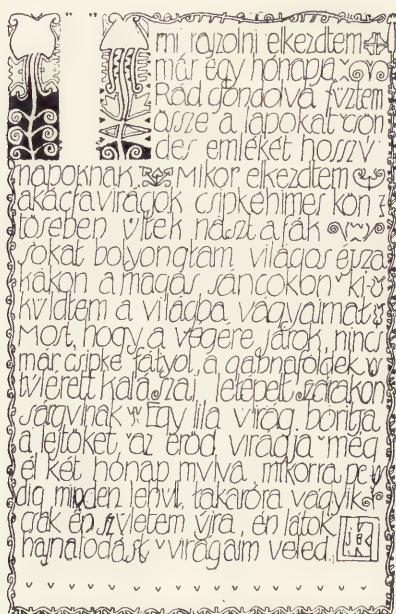 mi rajzolni elkezdtem
már egy hónapja
Rád gondolva fűztem
össze a lapokat csön
des emlékét hosszú
napoknak. Mikor elkezdtem
akácfavirágok csipkehímes kön
tösében ültek nászt a fák
sokat bolyongtam világos éjsza
kákon a magas sáncokon ki
küldtem a világba vágyaimat
Most, hogy a végére járok, nincs
már csipke fátyol, a gabnaföldek
túlérett kalászai letépett szárakon
sárgulnak Egy lila virág borítja
a lejtőket az erőd virágja még
él két hónap múlva mikorra pe
dig minden lehull, takaróra vágyik
csak én születem újra, én látok
hajnalodást virágaim veled.